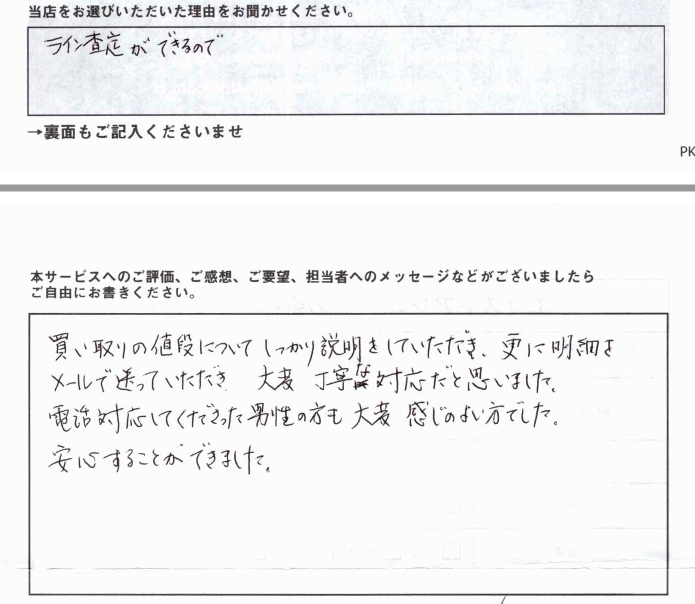 当店をお選びいただいた理由をお聞かせください。
ライン査定ができるので
→裏面もご記入くださいませ
PK
本サービスへのご評価、ご感想、ご要望、担当者へのメッセージなどがございましたら
ご自由にお書きください。
買い取りの値段についてしっかり説明をしていただき、更に明細を
メールで送っていただき 大変 丁寧な対応だと思いました。
電話対応してくださった男性の方も大変 感じのよい方でした。
安心することができました。